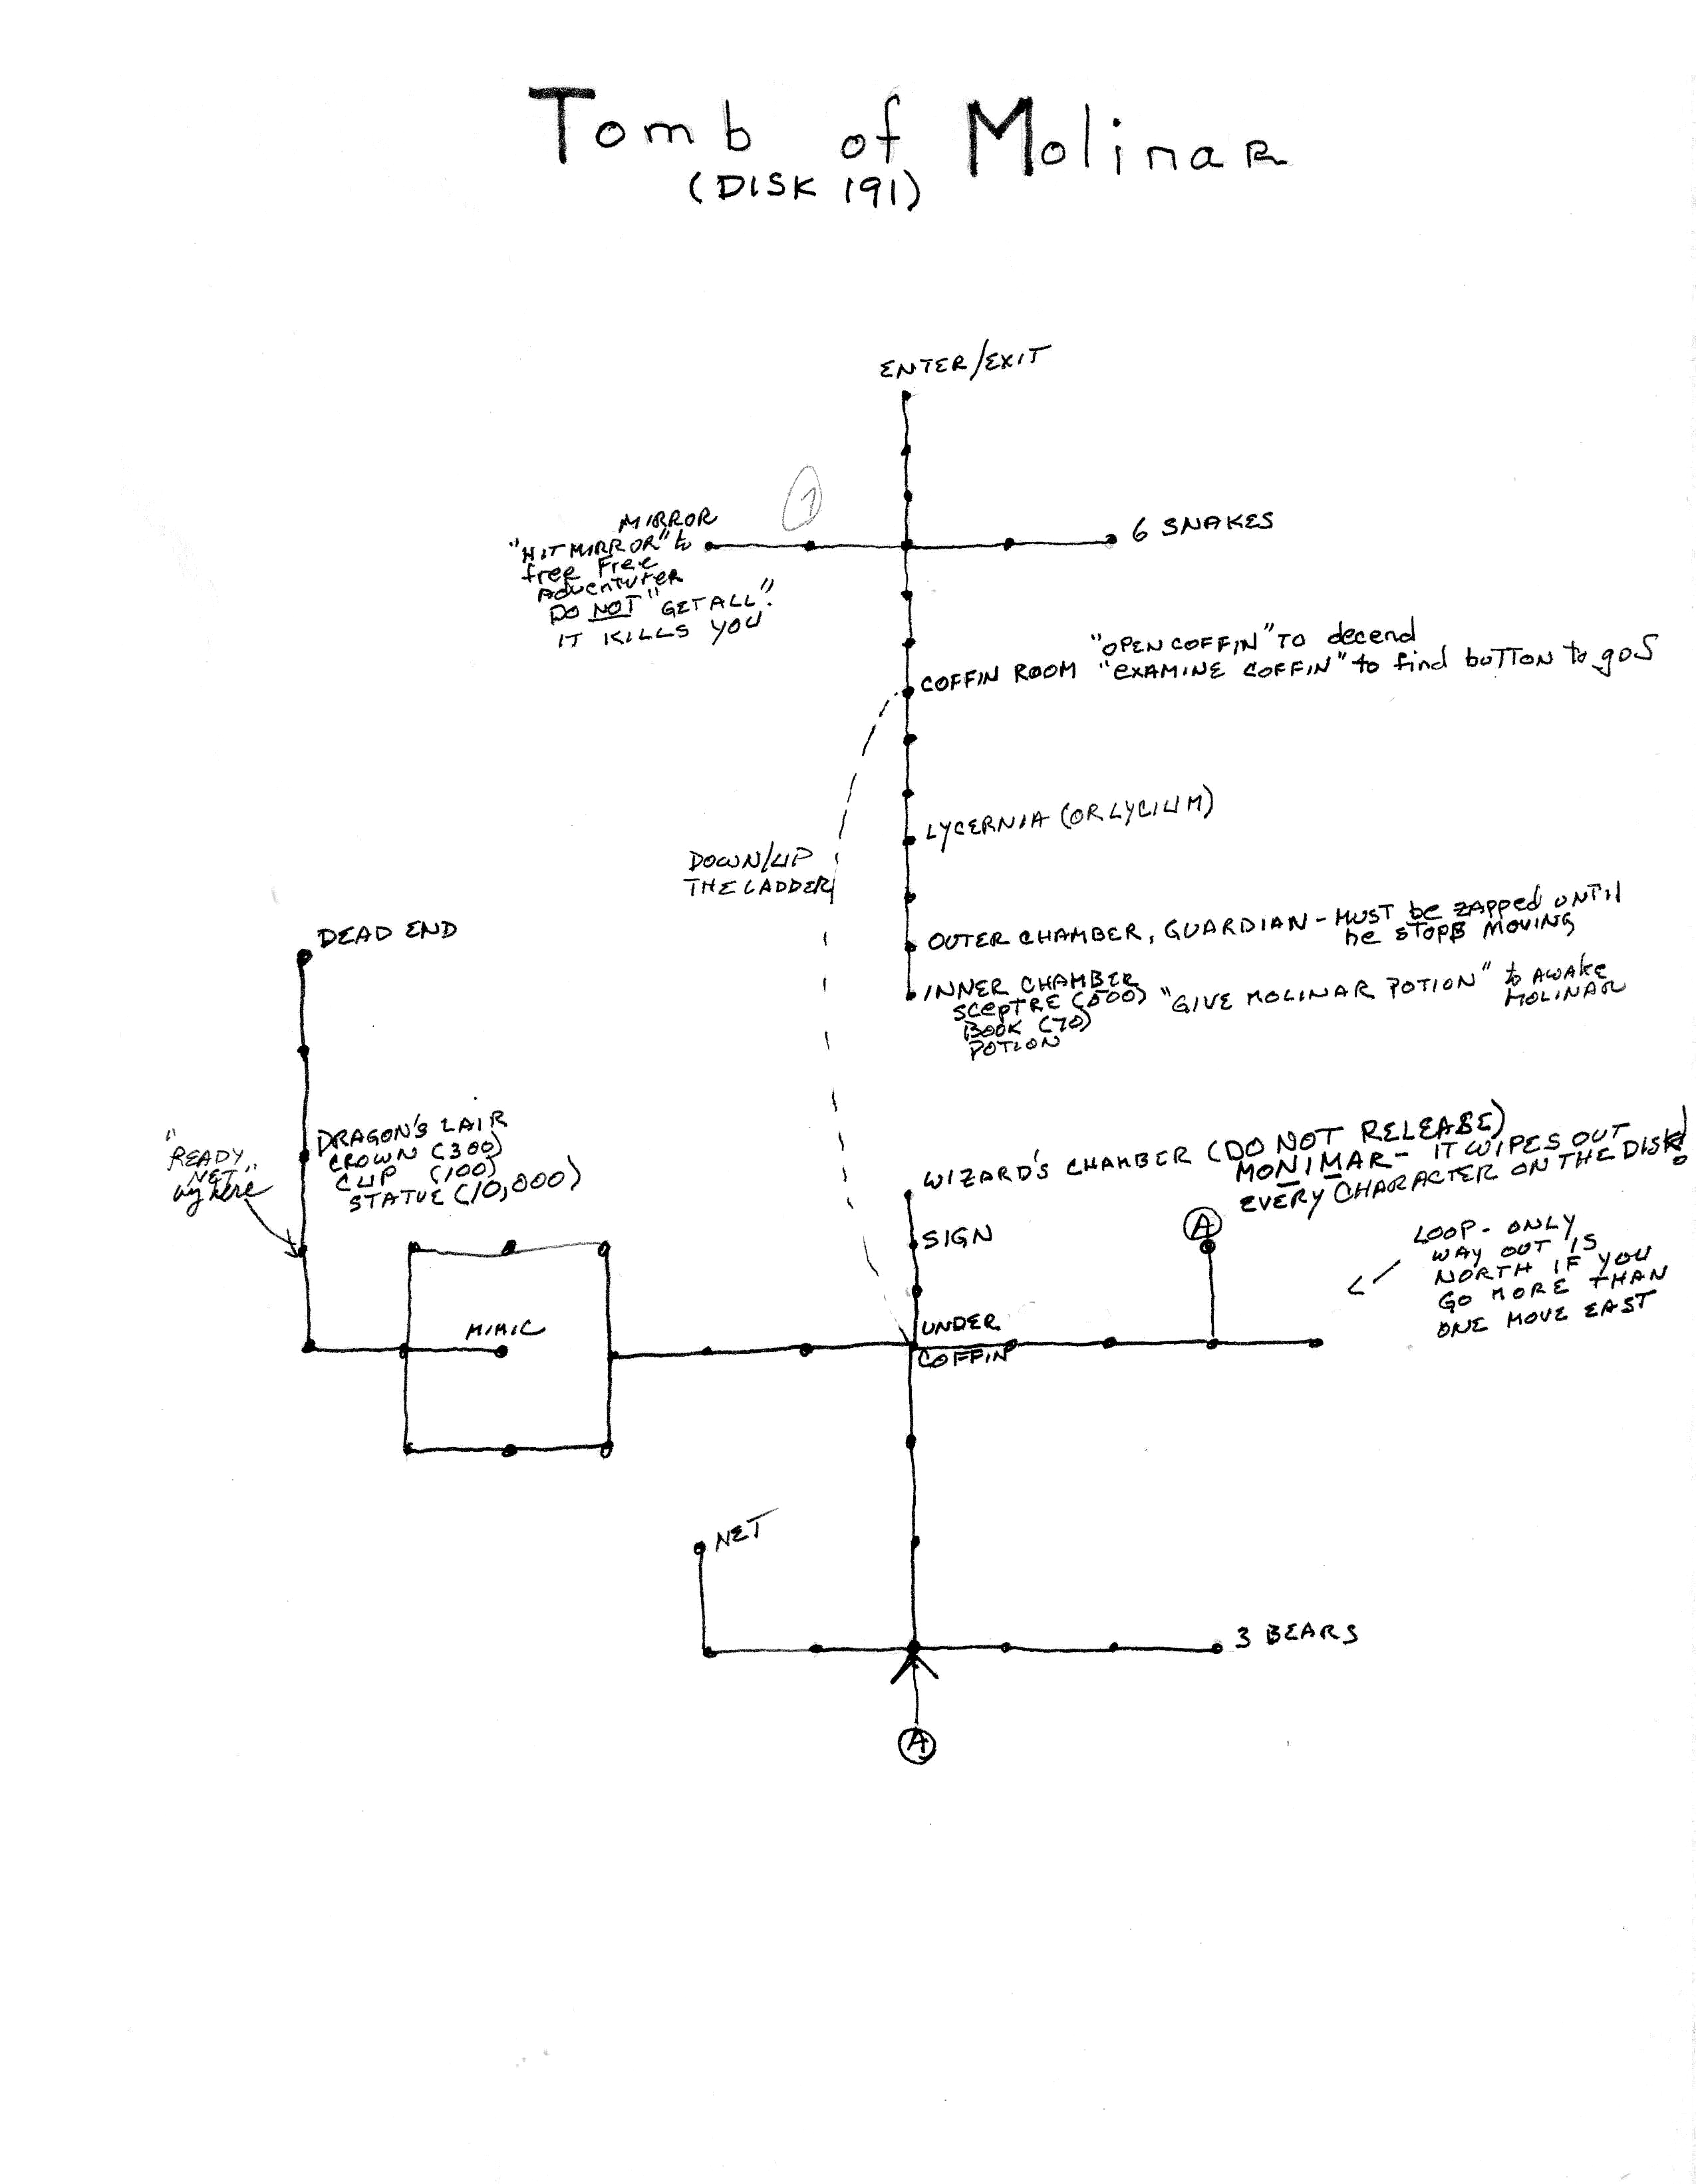 Tomb of Molinar
(DISK 191)
ENTER/EXIT
MIRROR
"HIT MIRROR" to
free Free
Adventurer
DO NOT "GET ALL".
IT KILLS YOU
6 SNAKES
"OPEN COFFIN" TO decend
COFFIN ROOM "EXAMINE COFFIN" to find button to go S
LYCERNIA (OR LYCIUM)
DOWN/UP
THE LADDER
OUTER CHAMBER, GUARDIAN - MUST be ZAPPED UNTIL
he STOPS MOVING
INNER CHAMBER
SCEPTRE (500) "GIVE MOLINAR POTION" to AWAKE
MOLINAR
BOOK (70)
POTION
DEAD END
DRAGON'S LAIR
CROWN (300)
CUP (100)
STATUE (10,000)
"READY
NET"
by here
WIZARD'S CHAMBER (DO NOT RELEASE)
MONIMAR - IT WIPES OUT
EVERY CHARACTER ON THE DISK!
SIGN
A
LOOP - ONLY
WAY OUT IS
NORTH IF YOU
GO MORE THAN
ONE MOVE EAST
MIMIC
UNDER
COFFIN
NET
3 BEARS
A